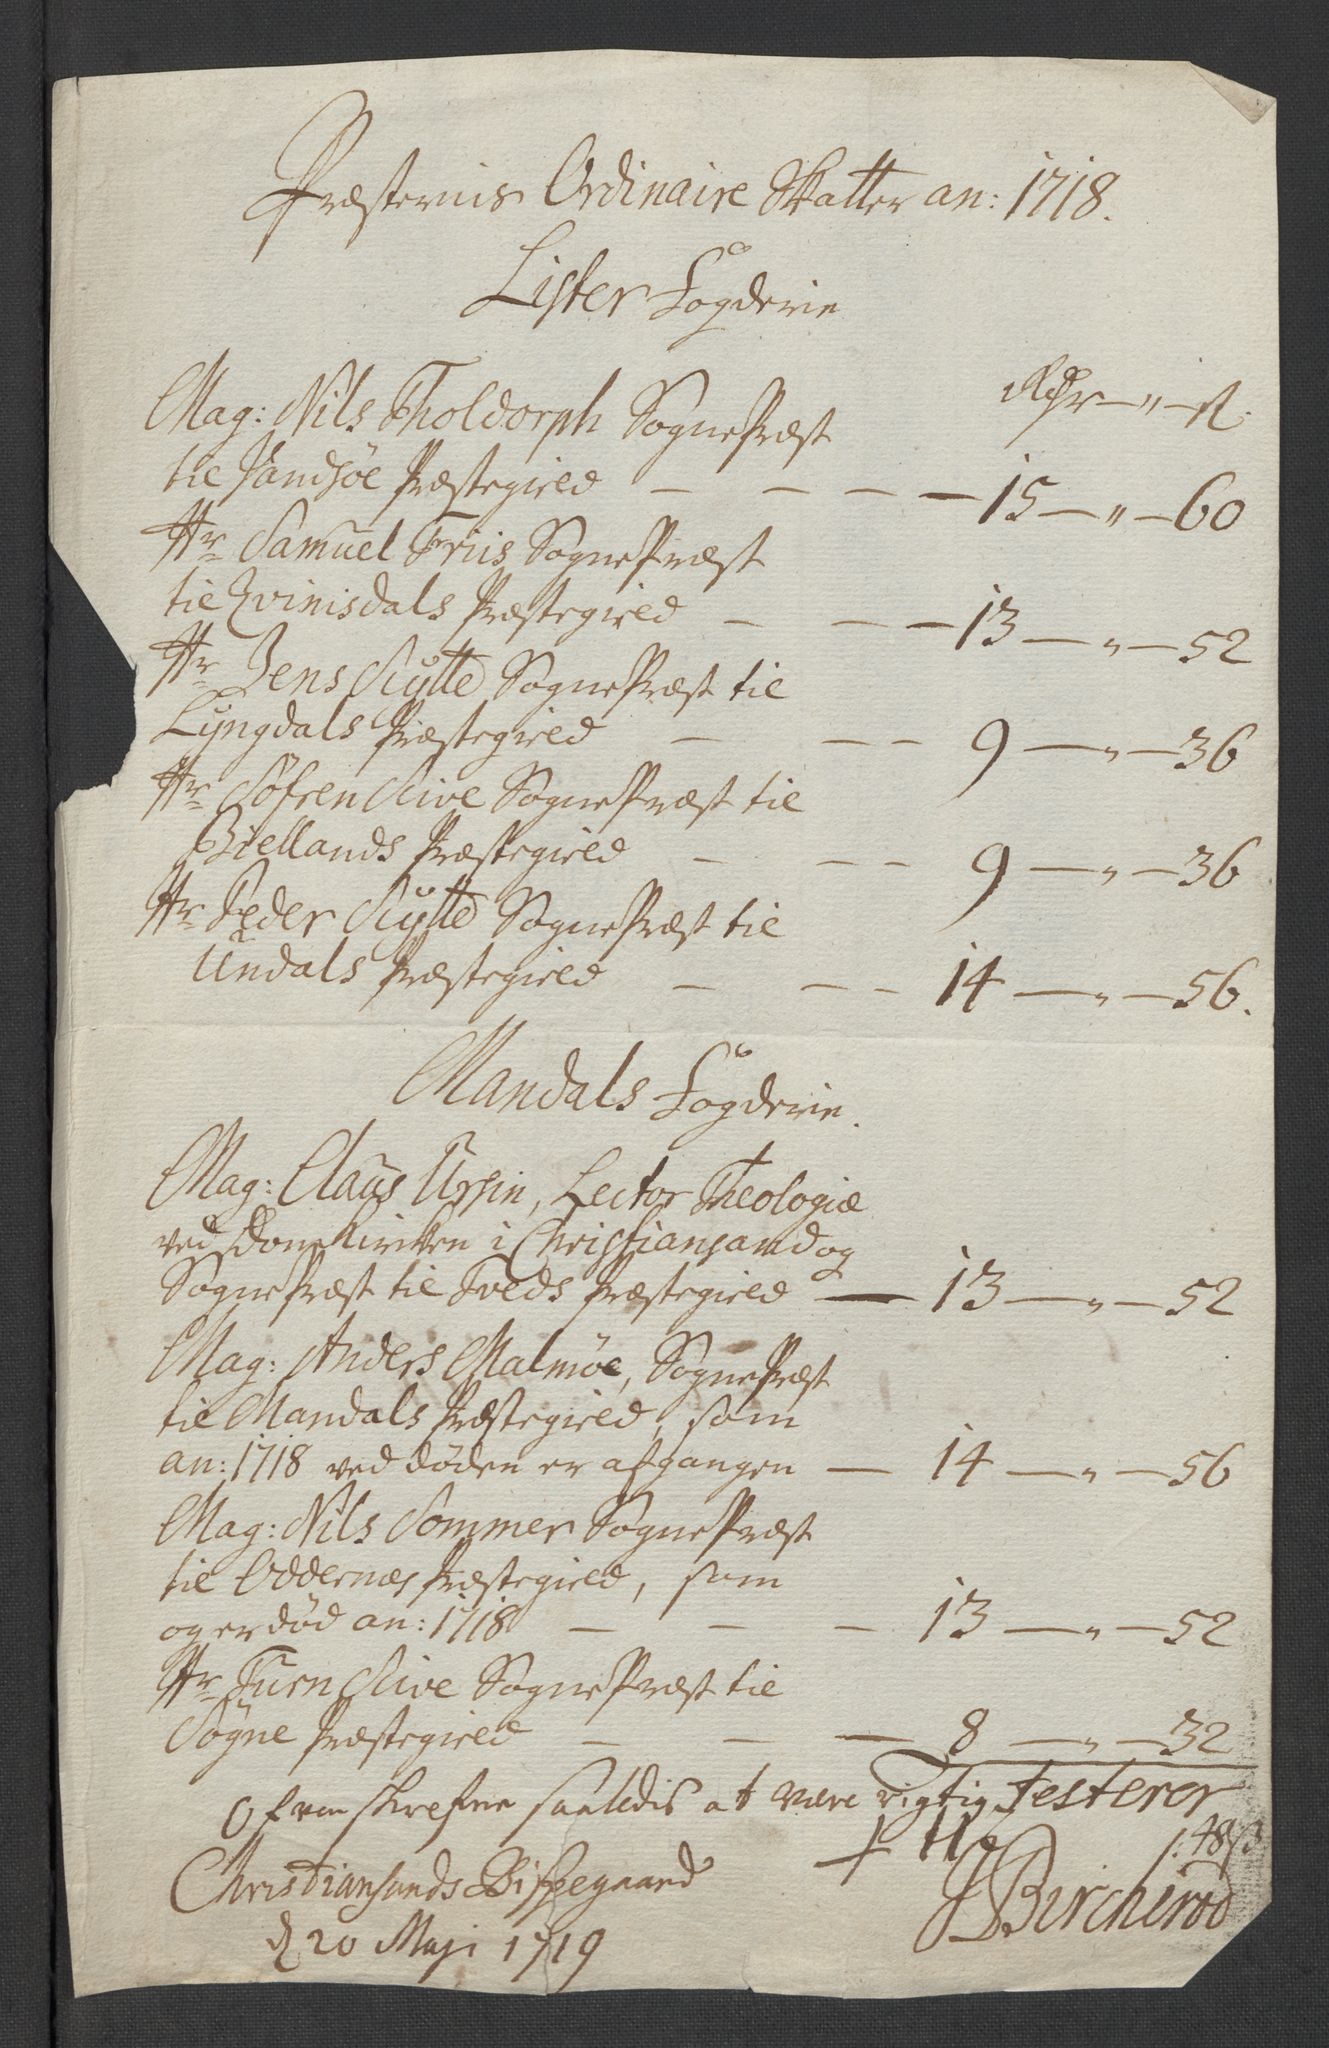 Præsternis Ordinaire Skatter an: 1718.
Lister Fogderie
Rdr — „ — sl.
Mag: Nils Tholdorph Sognepræst
til Vandsøe Præstegield — — — — 15 — „ — 60
Hr Samuel Friis Sognepræst
til Qvinisdals Præstegield — — — 13 — „ — 52
Hr Jens Skytte Sognepræst til
Lyngdals Præstegield — — — 9 — „ — 36
Hr Søfren Stive Sognepræst til
Biellands Præstegield — — — 9 — „ — 36
Hr Peder Skytte Sognepræst til
Undals Præstegield — — — 14 — „ — 56.
Mandals Fogderie.
Mag: Claus Ursin, Lector Theologiæ
ved Domkirken i Christiansand og
Sognepræst til Tveds Præstegield — 13 — „ — 52
Mag: Anders Malmøe, Sognepræst
til Mandals Præstegield, som
an: 1718 ved døden er afgangen — 14 — „ — 56
Mag: Nils Sommer Sognepræst
til Oddernæs Præstegield, som
og er død an: 1718 — — — 13 — „ — 52
Hr Tuen Stive Sognepræst til
Søgne Præstegield — — — 8 — „ — 32
Ofvenskrefne saaledis at være rigtig Testerer
Christiansands Bispegaard
J Bircherod
d 20 Maji 1719